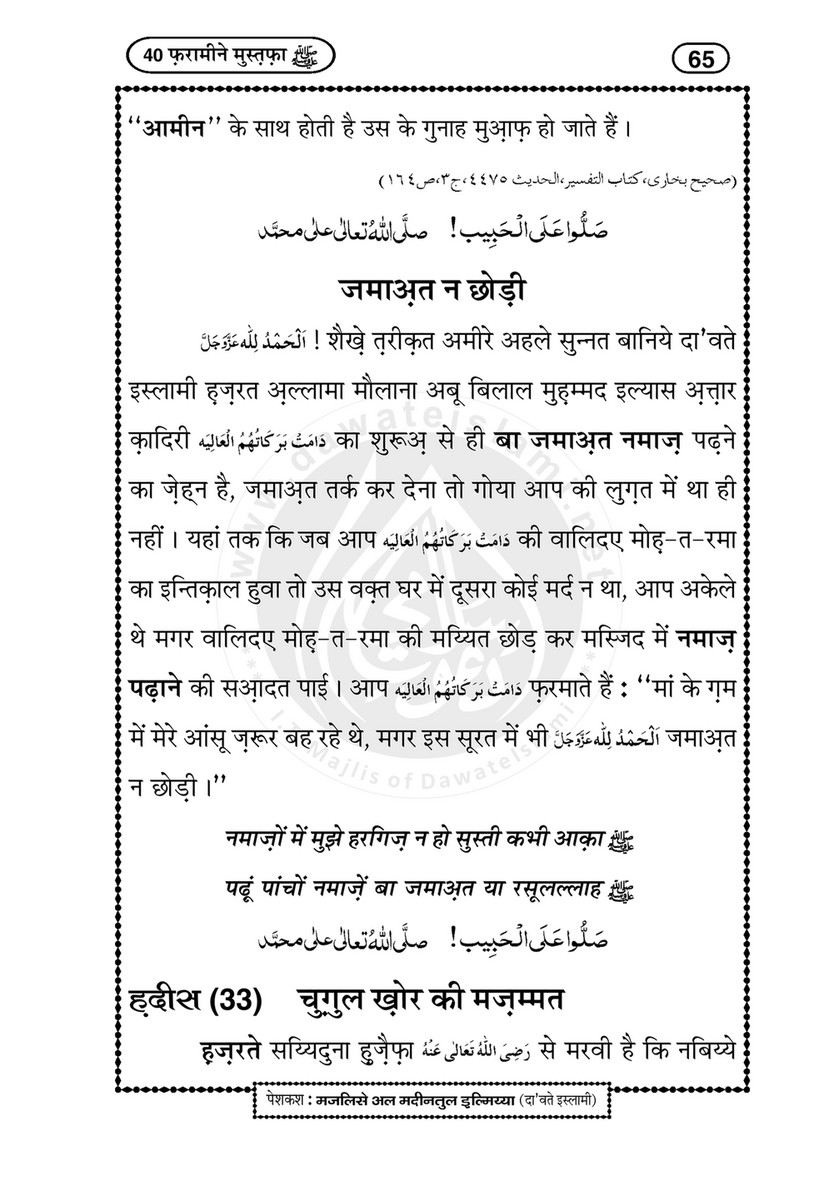 40 फ़रामीने मुस्त़फ़ा ﷺ
65
‘‘आमीन’’ के साथ होती है उस के गुनाह मुआ़फ़ हो जाते हैं ।
(صحیح بخاری،کتاب التفسیر،الحدیث ٤٤٧٥،ج٣،ص١٦٤)
صَلُّوا عَلَی الْحَبِیب! صلَّی اللہُ تعالٰی علٰی محمَّد
जमाअ़त न छोड़ी
اَلْحَمْدُ لِلّٰه عَزَّوَجَلَّ ! शैख़े त़रीक़त अमीरे अहले सुन्नत बानिये दा’वते
इस्लामी ह़ज़रत अ़ल्लामा मौलाना अबू बिलाल मुह़म्मद इल्यास अ़त्त़ार
क़ादिरी دَامَتْ بَرَكَاتُهُمُ الْعَالِيَه का शुरूअ़ से ही बा जमाअ़त नमाज़ पढ़ने
का ज़ेह्न है, जमाअ़त तर्क कर देना तो गोया आप की लुग़त में था ही
नहीं । यहां तक कि जब आप دَامَتْ بَرَكَاتُهُمُ الْعَالِيَه की वालिदए मोह़-त-रमा
का इन्तिक़ाल हुवा तो उस वक़्त घर में दूसरा कोई मर्द न था, आप अकेले
थे मगर वालिदए मोह़-त-रमा की मय्यित छोड़ कर मस्जिद में नमाज़
पढ़ाने की सआ़दत पाई । आप دَامَتْ بَرَكَاتُهُمُ الْعَالِيَه फ़रमाते हैं : ‘‘मां के ग़म
में मेरे आंसू ज़रूर बह रहे थे, मगर इस सूरत में भी اَلْحَمْدُ لِلّٰه عَزَّوَجَلَّ जमाअ़त
न छोड़ी ।’’
नमाज़ों में मुझे हरगिज़ न हो सुस्ती कभी आक़ा ﷺ
पढ़ूं पांचों नमाज़ें बा जमाअ़त या रसूलल्लाह ﷺ
صَلُّوا عَلَی الْحَبِیب! صلَّی اللہُ تعالٰی علٰی محمَّد
ह़दीस (33) चुग़ुल ख़ोर की मज़म्मत
ह़ज़रते सय्यिदुना हु़ज़ैफ़ा رَضِیَ اللّٰهُ تَعَالٰی عَنْهُ से मरवी है कि नबिय्ये
पेशकश : मजलिसे अल मदीनतुल इल्मिय्या (दा’वते इस्लामी)
www.dawateislami.net
I.T. Majlis of DawateIslami